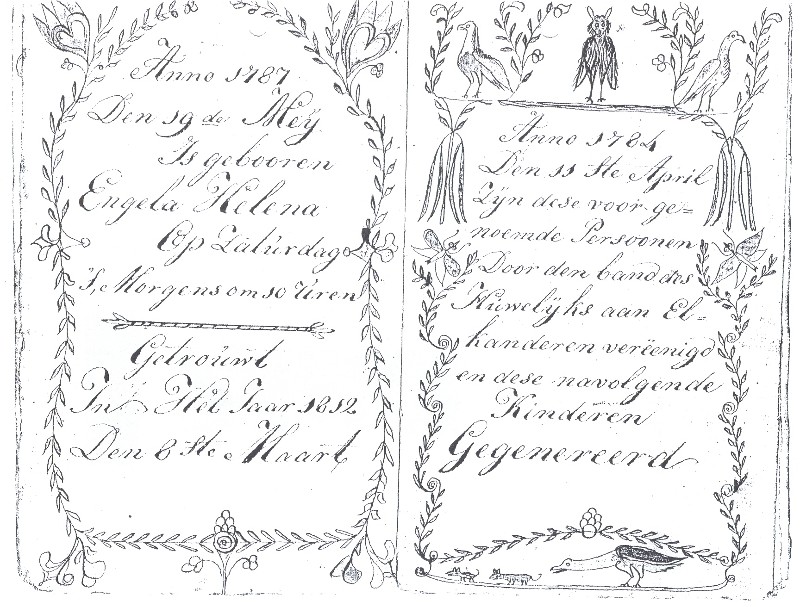 Anno 1787
Den 19 de Meÿ
Is gebooren
Engela Helena
Op Zaturdag
'S, Morgens om 10 Uren
Getrouwt
In Het Jaar 1812
Den 8 ste Maart
Anno 1784
Den 11 ste April
Zÿn dese voor ge=
noemde Persoonen
Door den band des
Huwelÿks aan El=
kanderen vereenigd
en dese navolgende
Kinderen
Gegenereerd